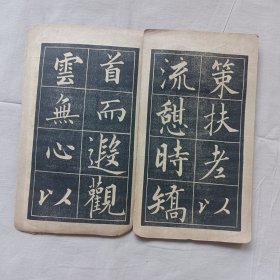 策扶老以
流憩時矯
首而遐觀
雲無心以